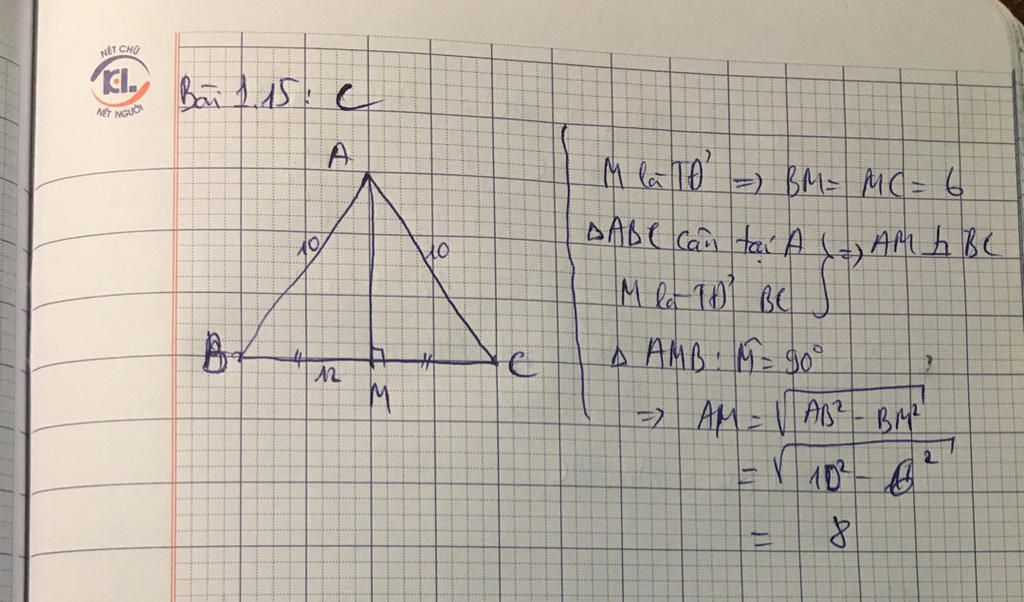 NÉT CHỮ
KCL
NÉT NGƯỜI
Bài 1.15: C
A
10
10
B
12
M
C
M là TĐ' => BM = MC = 6
△ABC cân tại A } => AM ⊥ BC
M là TĐ' BC
△ AMB: M̂ = 90°
=> AM = √AB² - BM²
= √10² - 6²
= 8